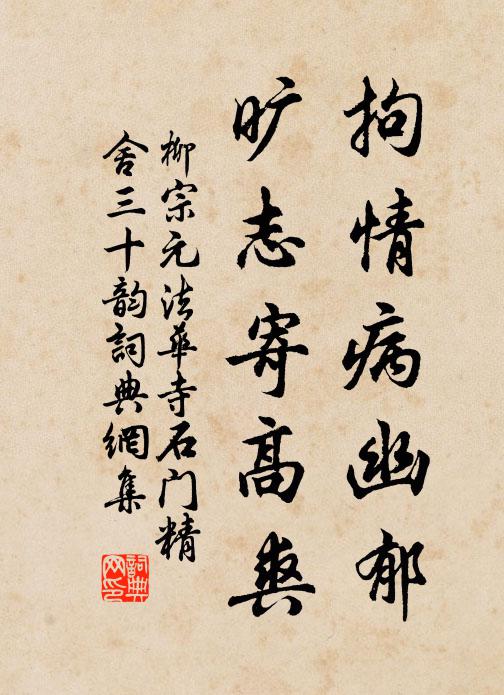 拘情病幽郁
旷志寄高爽
柳宗元法華寺石门精
舍三十韵詞典網集
詞典
网印